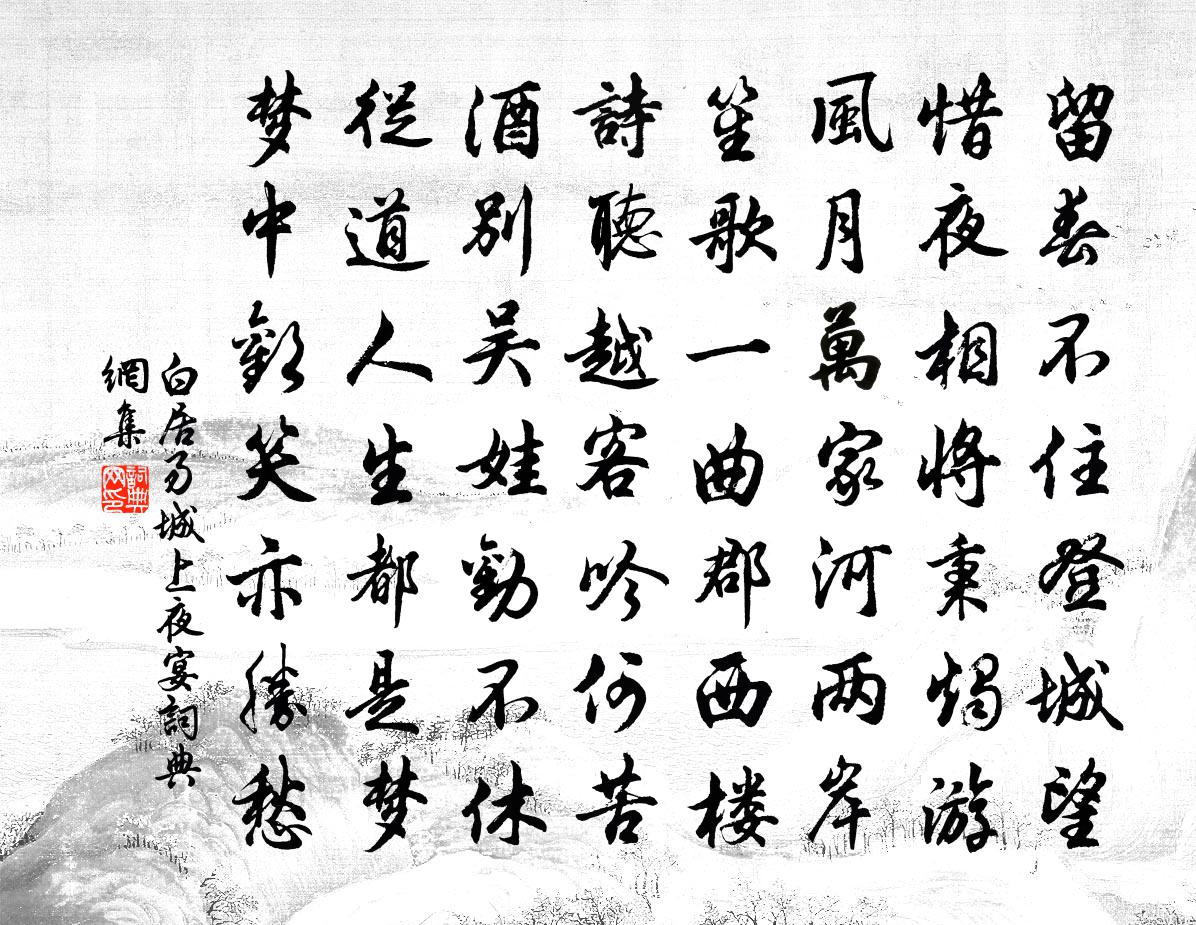 留春不住登城望
惜夜相將秉燭游
風月萬家河两岸
笙歌一曲郡西楼
詩聽越客吟何苦
酒別吴娃勸不休
從道人生都是梦
梦中歡笑亦勝愁
白居易城上夜宴詞典
網集
詞典网印